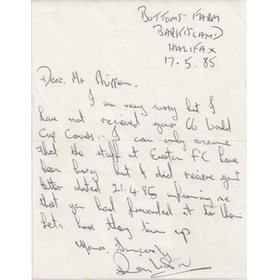 BOTTOMS FARM
BARKISLAND
HALIFAX
17.5.85
Dear Mr. Phippen.
I am very sorry but I
have not received your 66 World
Cup Covers. I can only assume
that the staff at Everton FC have
been busy but I did receive your
letter dated 21.4.85 informing me
that you had forwarded it to them
Lets hope they turn up
Yours Sincerely
Ray Wilson